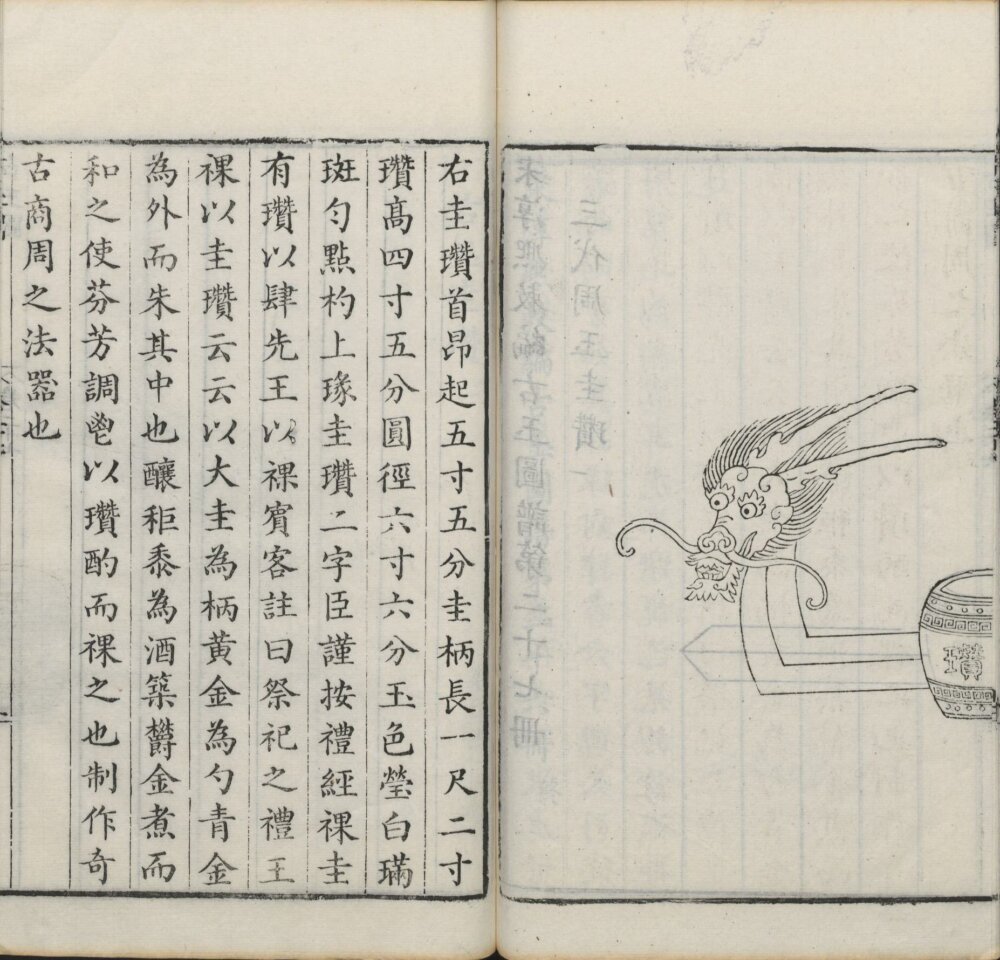 瓚
右圭瓚首昂起五寸五分圭柄長一尺二寸
瓚髙四寸五分圓徑六寸六分玉色瑩白璊
斑勻點杓上瑑圭瓚二字臣謹按禮經祼圭
有瓚以肆先王以祼賓客註曰祭祀之禮王
祼以圭瓚云云以大圭為柄黄金為勺青金
為外而朱其中也釀秬黍為酒築欝金煮而
和之使芬芳調鬯以瓚酌而祼之也制作奇
古商周之法器也